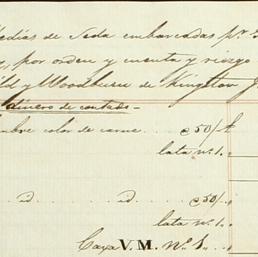 Medias de Seda embarcadas pr.
por orden y cuenta y riezgo
Woodburn de Kingston
dinero de contado
color de carne ... @ 50/
lata nº. 1.
id id @ 50/.
lata nº. 1.
Caxa V. M. Nº 1.